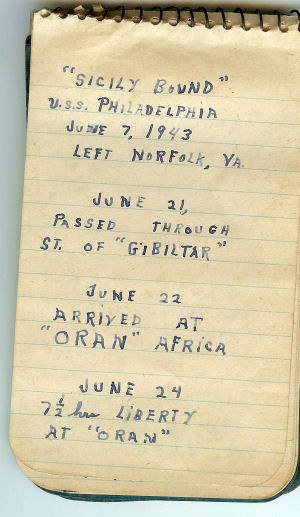 "SICILY BOUND"
U.S.S. PHILADELPHIA
JUNE 7, 1943
LEFT NORFOLK, VA.
JUNE 21,
PASSED THROUGH
ST. OF "GIBILTAR"
JUNE 22
ARRIVED AT
"ORAN" AFRICA
JUNE 24
7½ hrs LIBERTY
AT "ORAN"